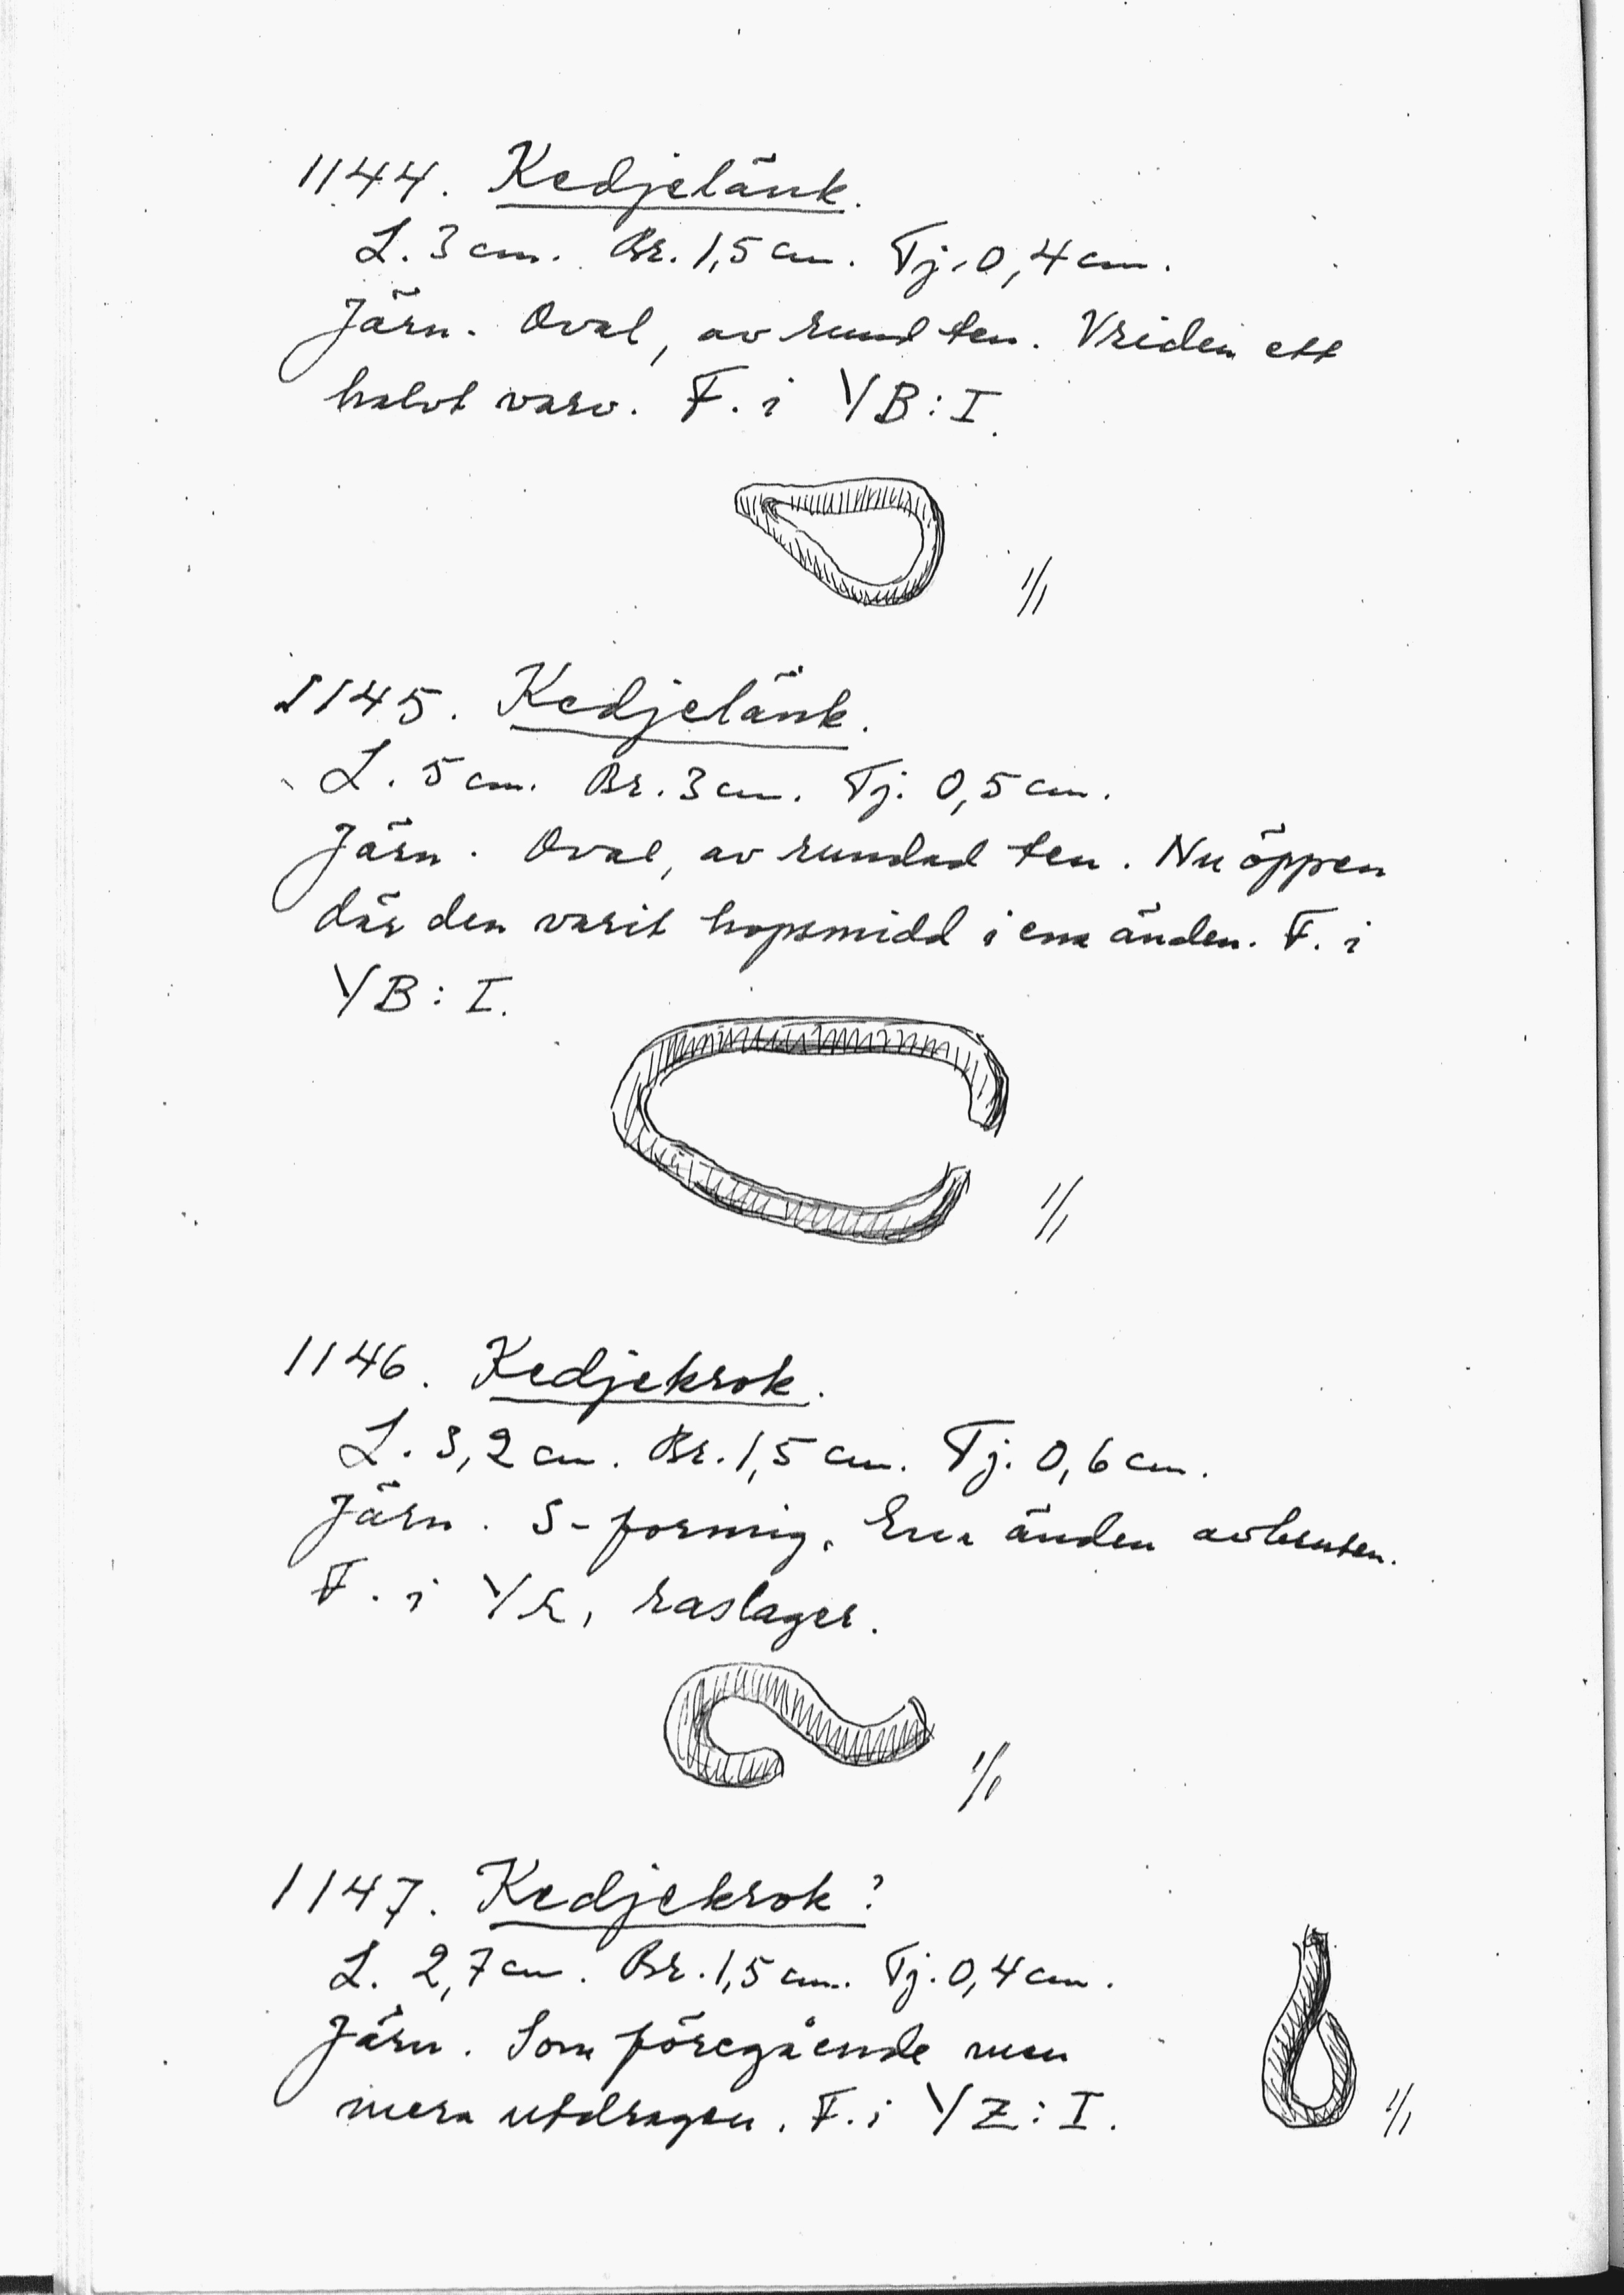 1144. Kedjelänk.
L. 3 cm. Br. 1,5 cm. Tj. 0,4 cm.
Järn. Oval, av rund ten. Vriden ett
halvt varv. F. i YB:I.
1/1
1145. Kedjelänk.
L. 5 cm. Br. 3 cm. Tj. 0,5 cm.
Järn. Oval, av rundad ten. Nu öppen
där den varit hopsmidd i ena änden. F. i
YB:I.
1/1
1146. Kedjekrok.
L. 3,2 cm. Br. 1,5 cm. Tj. 0,6 cm.
Järn. S-formig. Ena änden avbruten.
F. i YR, raslager.
1/1
1147. Kedjekrok?
L. 2,7 cm. Br. 1,5 cm. Tj. 0,4 cm.
Järn. Som föregående men
mera utdragen. F. i YZ:I.
1/1